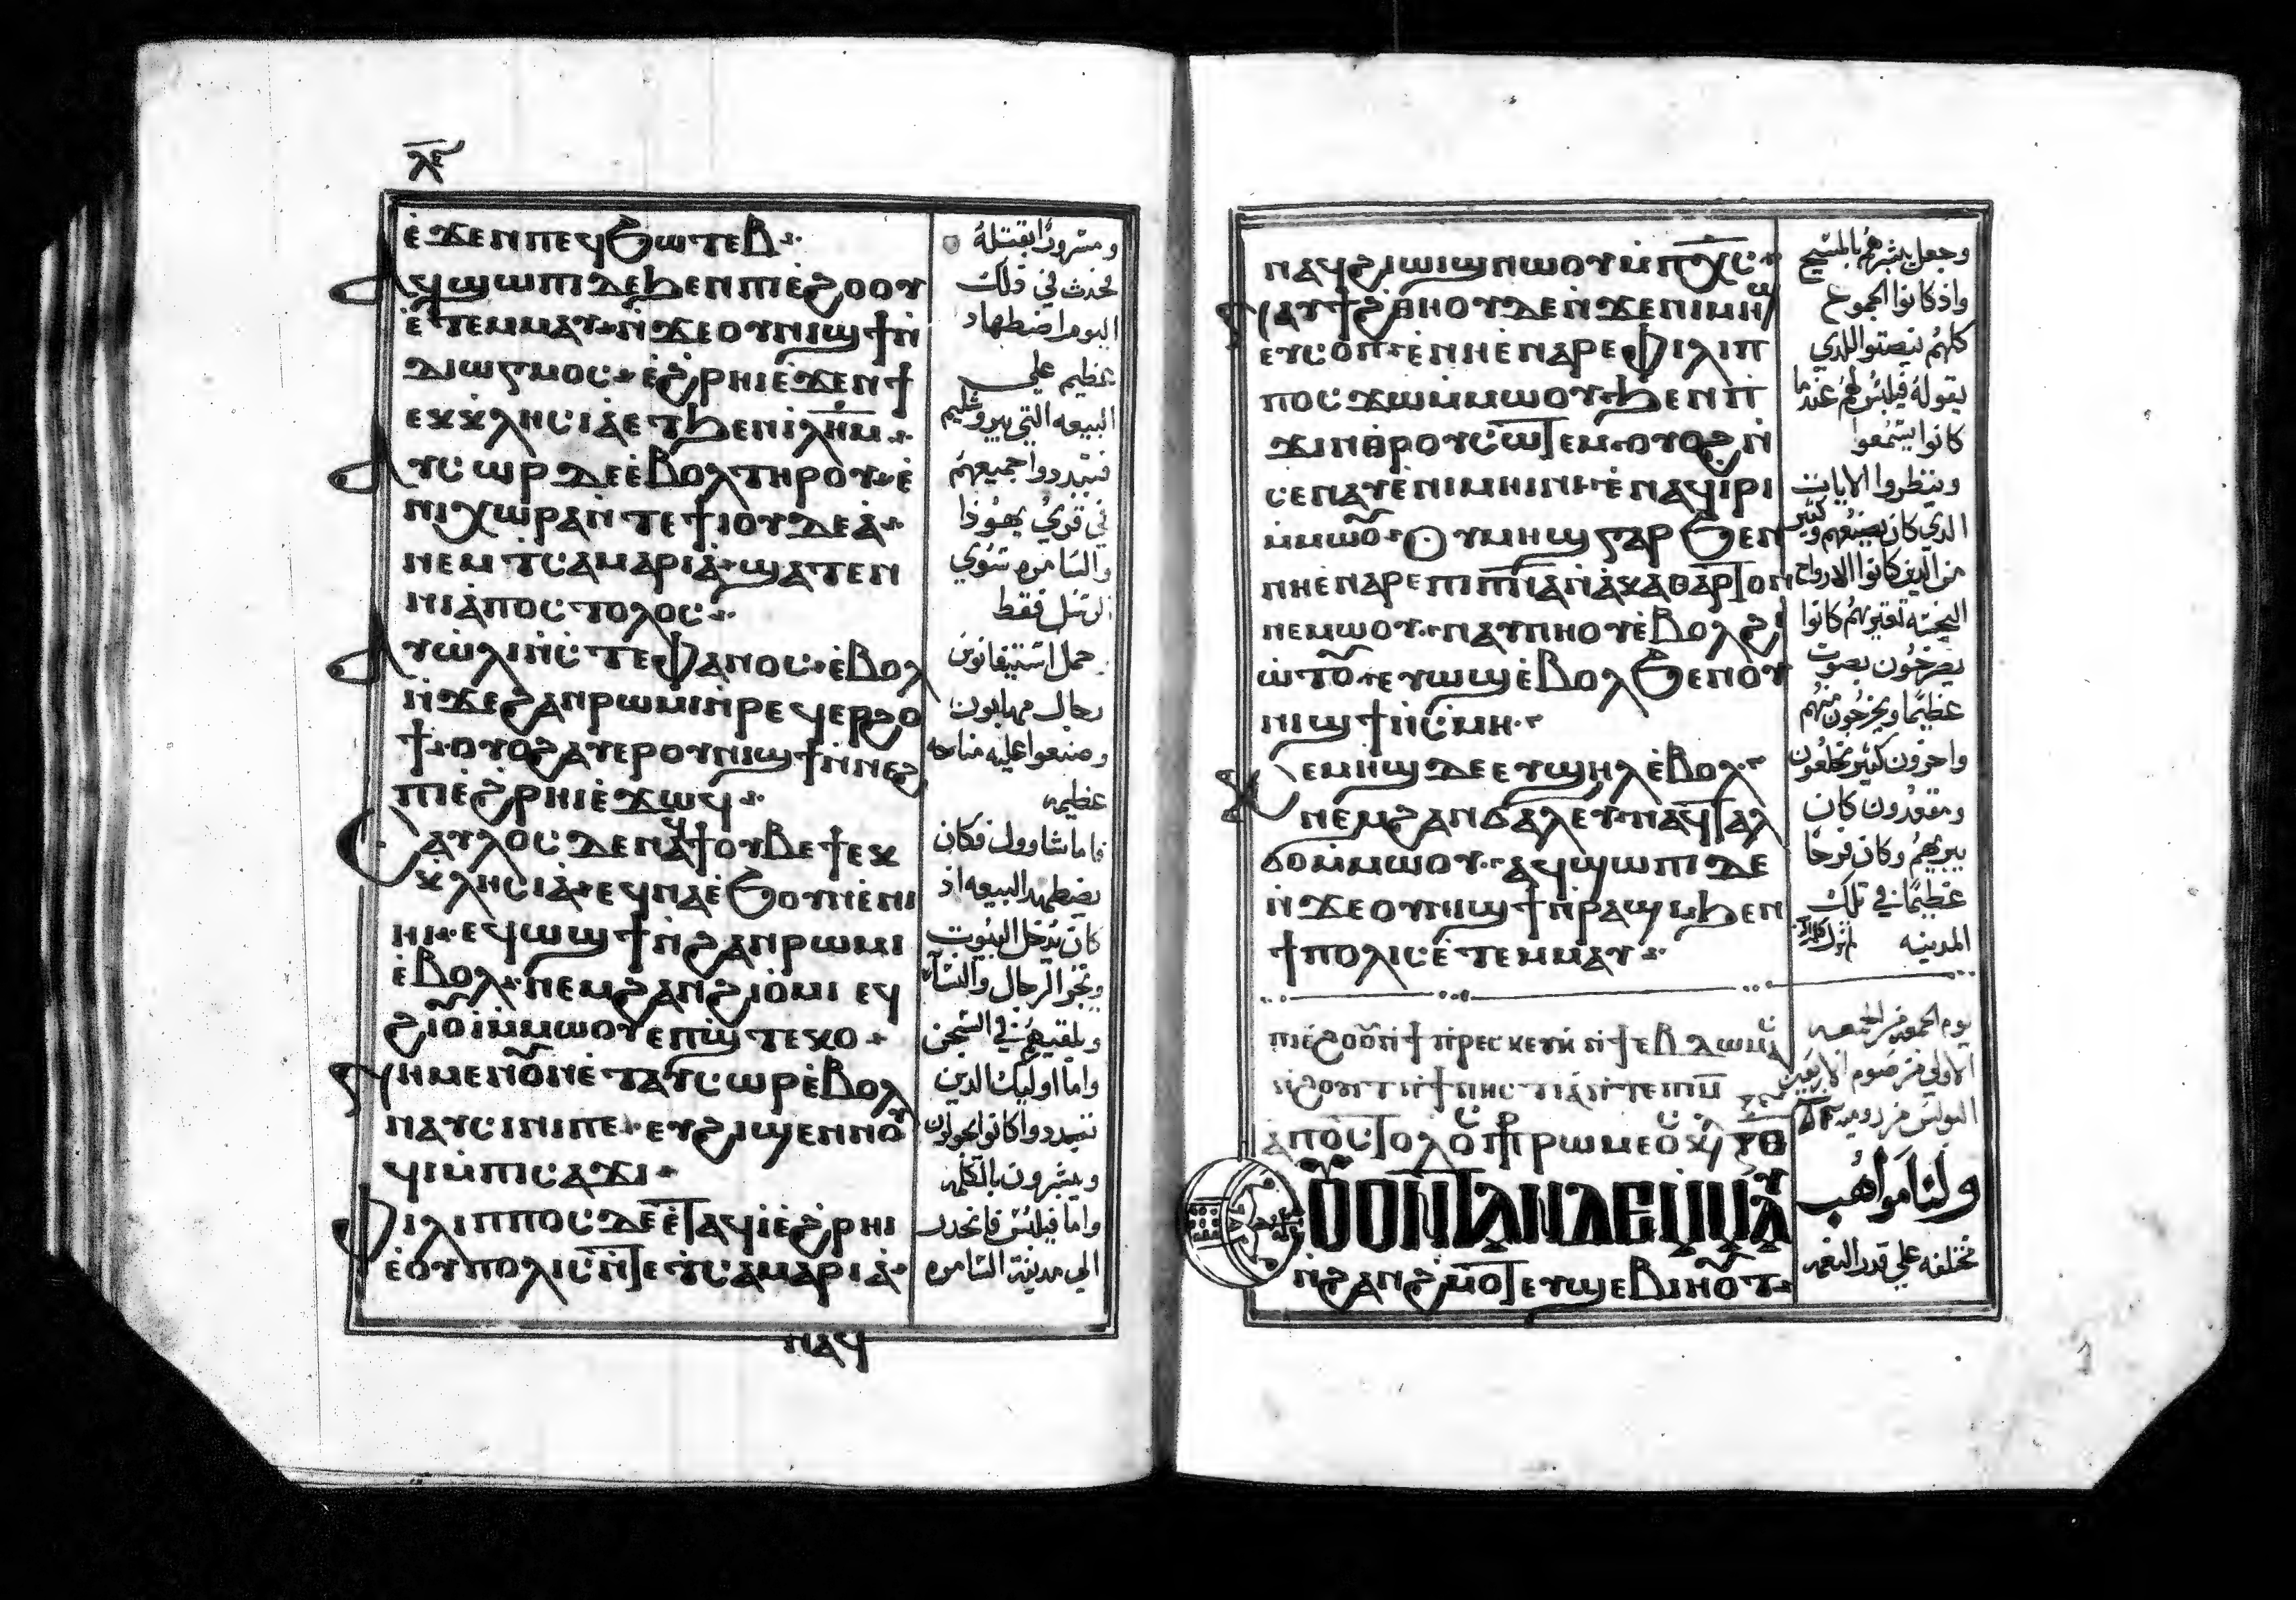 ⲗⲉ
ⲉ̇ϫⲉⲛⲡⲉϥϧⲱⲧⲉⲃ
ⲁϥϣⲱⲡⲓⲇⲉϧⲉⲛⲡⲓⲉ̇ϩⲟⲟⲩ
ⲉ̇ⲧⲉⲙⲙⲁⲩⲛ̇ϫⲉⲟⲩⲛⲓϣϯⲛ̇
ⲇⲓⲱⲅⲙⲟⲥⲉ̇ϩⲣⲏⲓⲉ̇ϫⲉⲛϯ
ⲉⲕⲕⲗⲏⲥⲓⲁ̇ⲉⲧϧⲉⲛⲓⲗⲏⲙ
ⲁⲩⲥⲱⲣⲇⲉⲉ̇ⲃⲟⲗⲧⲏⲣⲟⲩⲉ̇
ⲛⲓⲭⲱⲣⲁⲛ̇ⲧⲉϯⲓⲟⲩⲇⲉⲁ̇
ⲛⲉⲙⲧ̇ⲥⲁⲙⲁⲣⲓⲁ̇ϣⲁⲧⲉⲛ
ⲛⲓⲁ̇ⲡⲟⲥⲧⲟⲗⲟⲥ
ⲁⲩⲱ̇ⲗⲓⲛ̇ⲥ̇ⲧⲉⲫⲁⲛⲟⲥⲉ̇ⲃⲟⲗ
ⲛ̇ϫⲉϩⲁⲛⲣⲱⲙⲓⲛ̇ⲣⲉϥⲉⲣϩⲟ
ϯⲟⲩⲟϩⲁⲩⲉⲣⲟⲩⲛⲓϣϯⲛ̇ⲛⲉϩ
ⲡⲓⲉ̇ϩⲣⲏⲓⲉ̇ϫⲱϥ
ⲥⲁⲩⲗⲟⲥⲇⲉⲛⲁϥϯⲟⲩⲃⲉϯⲉⲕ
ⲕⲗⲏⲥⲓⲁ̇ⲉϥⲛⲁⲉ̇ϧⲟⲩⲛⲉ̇ⲛⲓ
ⲏⲓⲉϥϣϣϯⲛ̇ϩⲁⲛⲣⲱⲙⲓ
ⲉ̇ⲃⲟⲗⲛⲉⲙϩⲁⲛϩⲓⲟ̇ⲙⲓ ⲉϥ
ϩⲓⲟⲩ̇ⲓⲙ̇ⲙⲱⲟⲩⲉⲡϣ̇ⲧⲉⲕⲟ
ⲛⲏⲙⲉⲛⲟⲩⲛⲉ̇ⲧⲁⲩⲥⲱⲣⲉ̇ⲃⲟⲗ
ⲛⲁⲩⲥⲓⲛⲓⲡⲉⲉⲩϩⲓϣⲉⲛⲛⲟⲩ
ϥⲓⲙ̇ⲡⲓⲥⲁϫⲓ
ⲫⲓⲗⲓⲡⲡⲟⲥⲇⲉⲉ̇ⲧⲁϥⲓ̇ⲉ̇ϩⲣⲏⲓ
ⲉ̇ⲟⲩⲡⲟⲗⲓⲥⲛ̇ⲧⲉⲧ̇ⲥⲁⲙⲁⲣⲓⲁ̇
ⲛⲁϥ
ومسرورًا بقتله
فحدث في ذلك
اليوم اضطهاد
عظيم علي
البيعه التي بيروشليم
فتبددوا جميعهم
في قري يهوذا
والسامره سوي
الرسل فقط
حمل استيفانوس
رجال مهابون
وصنعوا عليه مناحه
عظيمه
فاما شاوول فكان
يضطهد البيعه اذ
كان يدخل البيوت
ويجر الرجال والنسآ
ويلقيهم في السجن
واما اوليك الدين
تبددوا كانوا يجولون
ويبشرون بالكلمه
واما فيلبس فانحدر
الي مدينة السامره
ⲛⲁϥϩⲓⲱⲓϣⲛⲱⲟⲩⲙ̇ⲡⲭⲥ
ⲛⲁⲩϯϩⲑⲏⲟⲩⲇⲉⲛ̇ϫⲉⲛⲓⲙⲏϣ
ⲉⲩⲥⲟⲡⲉ̇ⲛⲏⲉ̇ⲛⲁⲣⲉⲫⲓⲗⲓⲡ
ⲡⲟⲥϫⲱⲙ̇ⲙⲱⲟⲩϧⲉⲛⲡ
ϫⲓⲛⲑⲣⲟⲩⲥⲱⲧⲉⲙⲟⲩⲟϩⲛ̇
ⲥⲉⲛⲁⲩⲉ̇ⲛⲓⲙⲏⲓⲛⲓⲉ̇ⲛⲁϥⲓ̇ⲣⲓ
ⲙ̇ⲙⲱⲟⲩⲟⲩⲙⲏϣⲅⲁⲣϧⲉⲛ
ⲛⲏⲉ̇ⲛⲁⲣⲉⲛⲓⲡⲛⲁⲛ̇ⲁⲕⲁⲑⲁⲣⲧⲟⲛ
ⲛⲉⲙⲱⲟⲩⲛⲁⲩⲛⲏⲟⲩⲉ̇ⲃⲟⲗϩⲓ
ⲱ̇ⲧⲟⲩⲉⲩⲱϣⲉ̇ⲃⲟⲗϧⲉⲛⲟⲩ
ⲛⲓϣϯⲛ̇ⲥ̇ⲙⲏ
ⲕⲉⲙⲏϣⲇⲉⲉⲩϣⲏⲗⲉ̇ⲃⲟⲗ
ⲛⲉⲙϩⲁⲛϭⲁⲗⲉⲩⲛⲁϥⲧⲁⲗ
ϭⲟⲙ̇ⲙⲱⲟⲩⲁϥϣⲱⲡⲓⲇⲉ
ⲛ̇ϫⲉⲟⲩⲛⲓϣϯⲛ̇ⲣⲁϣⲓϧⲉⲛ
ϯⲡⲟⲗⲓⲥⲉ̇ⲧⲉⲙⲙⲁⲩ
ϩⲟⲩⲓⲧⲛ̇ϯⲛⲏⲥⲧⲓⲁⲛ̇ⲧⲉⲡⲓⲙ
ⲟⲩⲟⲛⲧⲁⲛⲇⲉⲙ̇ⲙⲁⲩ
ⲛ̇ϩⲁⲛϩ̇ⲙⲟⲧⲉⲩϣⲉⲃⲓⲏⲟⲩⲧ
وجعل يبشرهم بالمسيح
واذ كانوا الجموع
كلهم ينصتوا اللدي
يقوله فيلبس لهم عندما
كانوا يسمعوا
وينظروا الايات
الدي كان يصنعهم وكثير
من الدين كانوا الارواح
النجسه تعتريهم كانوا
يصرخون بصوت
عظيمًا ويخرجون منهم
واخرون كثير مخلعون
ومقعدون كان
يبريهم وكان فرحًا
عظيمًا في تلك
المدينه
يوم الجمعه
الاولي من صوم الاربعين
البولس من روميه
ولنا مواهب
مختلفه علي قدر النعمه